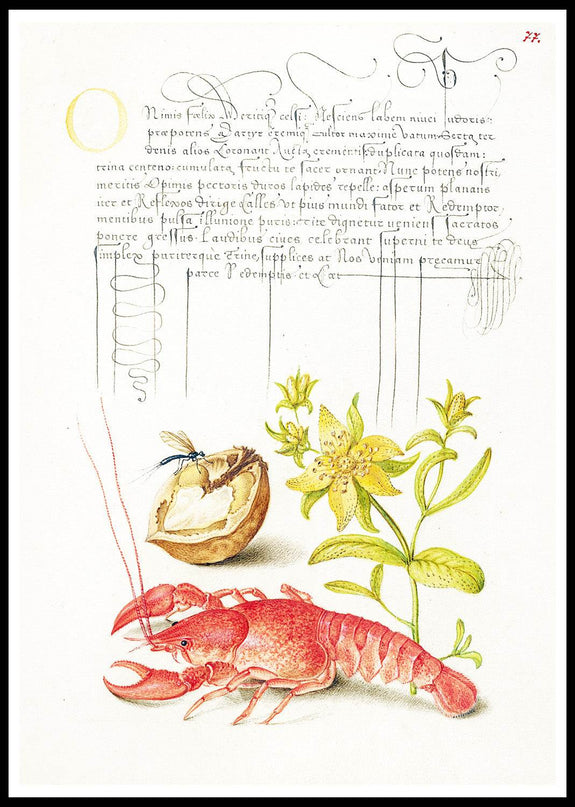 77.
O Nimis fœlix Meritiq3 celsi: Nesciens labem niuei Pudoris:
præpotens Martyr eremiq3 Cultor maxime Vatum. Serta ter
denis alios Coronant Aucta crementis: duplicata quosdam:
trina centeno cumulata fructu te sacer ornant. Nunc potens nostri
meritis Opimis pectoris duros lapides repelle: asperum planans
iter et Reflexos dirige Calles. Vt pius mundi Sator et Redemptor
mentibus pulsa illuuione puris: rite dignetur veniens Sacratos
ponere gressus. Laudibus ciues celebrant superni te deus
simplex pariterque Trine, supplices at Nos Veniam precamur
parce Redemptis et Cæt